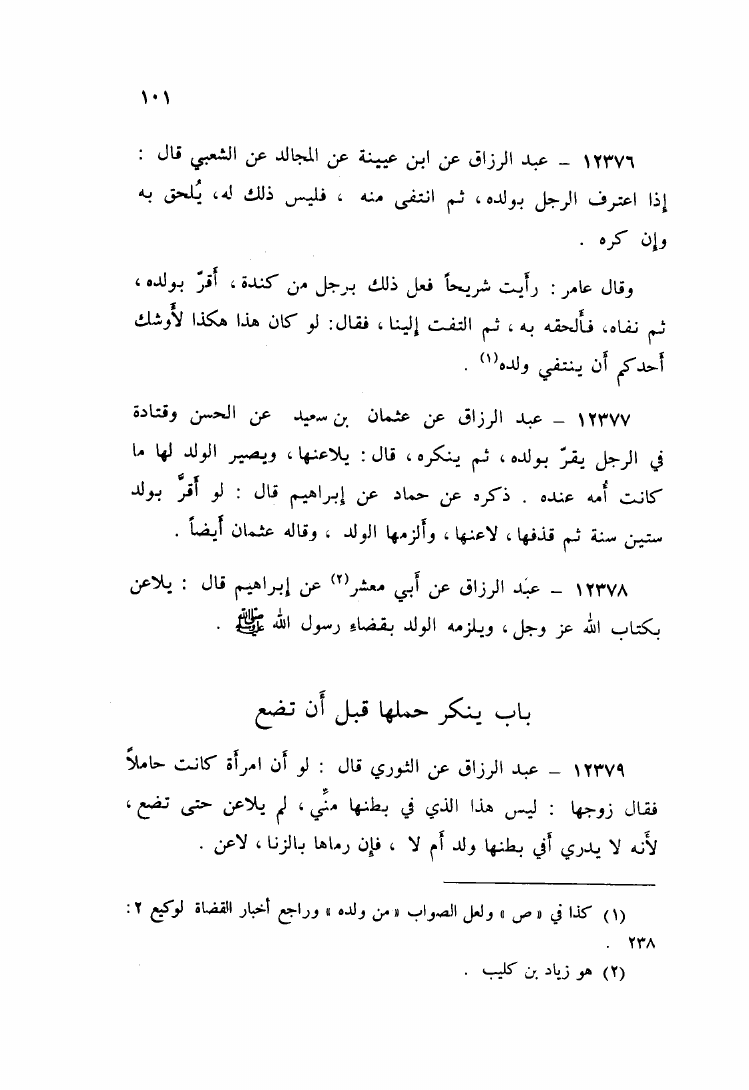 ١٠١
١٢٣٧٦ – عبد الرزاق عن ابن عيينة عن المجالد عن الشعبي قال :
إذا اعترف الرجل بولده ، ثم انتفى منه ، فليس ذلك له، يُلحق به
وإن كره .
وقال عامر : رأَيت شريحاً فعل ذلك برجل من كندة ، أَقرّ بولده ،
ثم نفاه، فأَلحقه به ، ثم التفت إلينا ، فقال: لو كان هذا هكذا لأَوشك
أَحدكم أَن ينتفي ولده(١) .
١٢٣٧٧ – عبد الرزاق عن عثمان بن سعيد عن الحسن وقتادة
في الرجل يقرّ بولده ، ثم ينكره ، قال : يلاعنها ، ويصير الولد لها ما
كانت أُمه عنده . ذكره عن حماد عن إبراهيم قال : لو أَقرَّ بولد
ستين سنة ثم قذفها ، لاعنها ، وأَلزمها الولد ، وقاله عثمان أَيضاً .
١٢٣٧٨ – عبَد الرزاق عن أَبي معشر(٢) عن إبراهيم قال : يلاعن
بكتاب الله عز وجل ، ويلزمه الولد بقضاءِ رسول الله ﷺ .
باب ينكر حملها قبل أَن تضع
١٢٣٧٩ – عبد الرزاق عن الثوري قال : لو أَن امرأَة كانت حاملاً
فقال زوجها : ليس هذا الذي في بطنها منِّي ، لم يلاعن حتى تضع ،
لأَنه لا يدري أَفي بطنها ولد أَم لا ، فإن رماها بالزنا ، لاعن .
(١) كذا في « ص » ولعل الصواب « من ولده » وراجع أخبار القضاة لوكيع ٢ :
٢٣٨ .
(٢) هو زياد بن كليب .